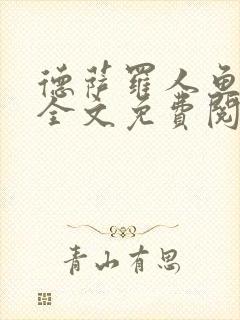 德萨罗人鱼
全文免费阅
青山有思